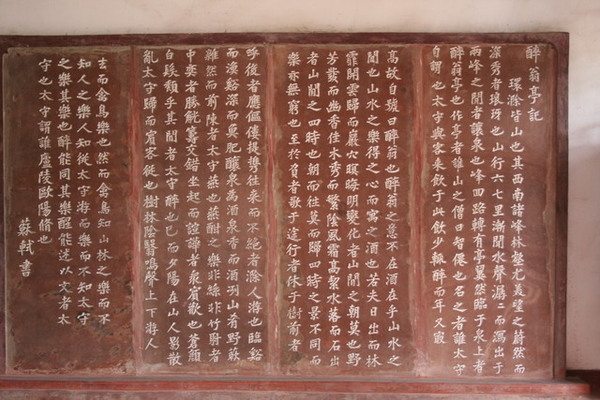 醉翁亭記
環滁皆山也其西南諸峰林壑尤美望之蔚然而
深秀者琅琊也山行六七里漸聞水聲潺二而瀉出于
兩峰之間者讓泉也峰回路轉有亭翼然臨于泉上者
醉翁亭也作亭者誰山之僧曰智僊也名之者誰太守
自謂也太守與客來飲于此飲少輒醉而年又最
高故自號曰醉翁也醉翁之意不在酒在乎山水之
間也山水之樂得之心而寓之酒也若夫日出而林
霏開雲歸而巖穴暝晦明變化者山間之朝莫也野
芳發而幽香佳木秀而繁陰風霜高潔水落而石出
者山間之四時也朝而往莫而歸四時之景不同而
樂亦無窮也至於負者歌于途行者休于樹前者
呼後者應傴僂提攜往來而不絕者滁人游也臨谿
而漁谿深而魚肥釀泉為酒泉香而酒冽山肴野蔌
雜然而前陳者太守燕也燕酣之樂非絲非竹射者
中奕者勝觥籌交錯坐起而諠譁者衆賓歡也蒼顏
白髮頹乎其間者太守醉也已而夕陽在山人影散
亂太守歸而賓客從也樹林陰翳鳴聲上下游人
去而禽鳥樂也然而禽鳥知山林之樂而不
知人之樂人知從太守游而樂而不知太守
之樂其樂也醉能同其樂醒能述以文者太
守也太守謂誰廬陵歐陽脩也
蘇軾書